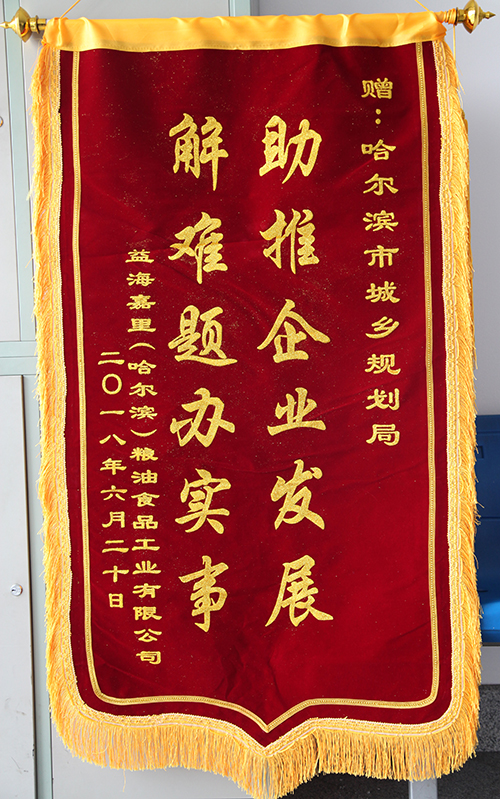 赠：哈尔滨市城乡规划局
助推企业发展
解难题办实事
益海嘉里（哈尔滨）粮油食品工业有限公司
二〇一八年六月二十日